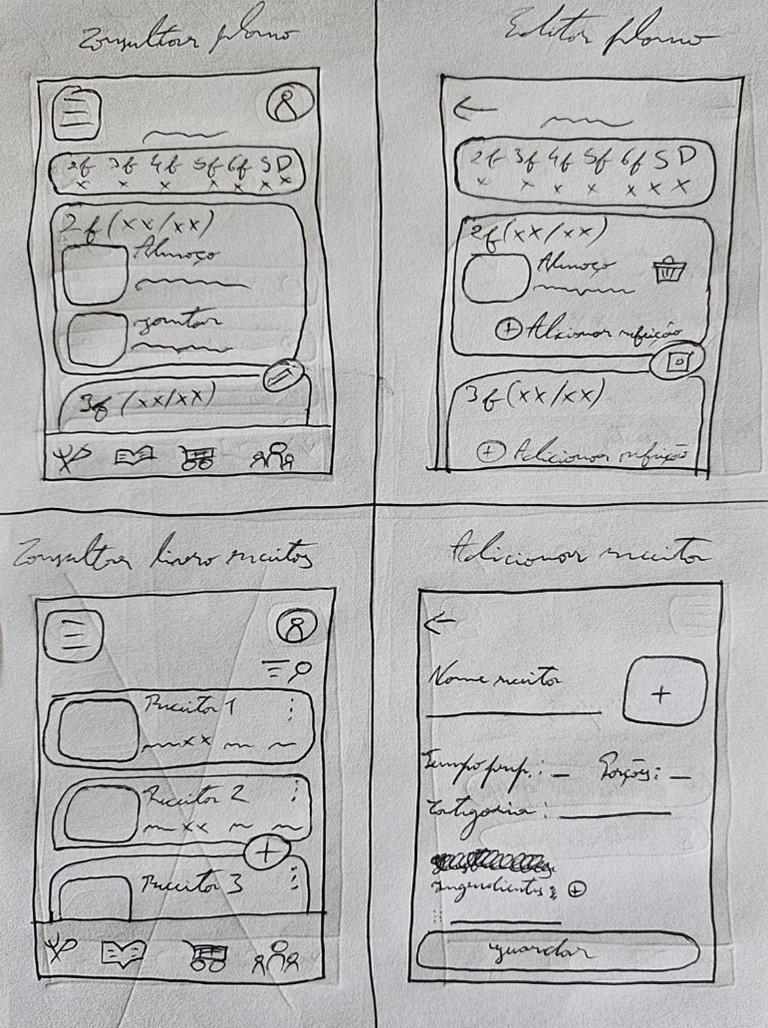 Consultar plano
2f 3f 4f 5f 6f S D
x x x x x x x
2f (xx/xx)
Almoço
Jantar
3f (xx/xx)
Editar plano
2f 3f 4f 5f 6f S D
x x x x x x x
2f (xx/xx)
Almoço
+ Adicionar refeição
3f (xx/xx)
+ Adicionar refeição
Consultar livro receitas
Receita 1
xx
Receita 2
xx
+
Receita 3
Adicionar receita
Nome receita
+
Tempo prep.: _ Porções: _
Categoria: _
Ingredientes: +
guardar